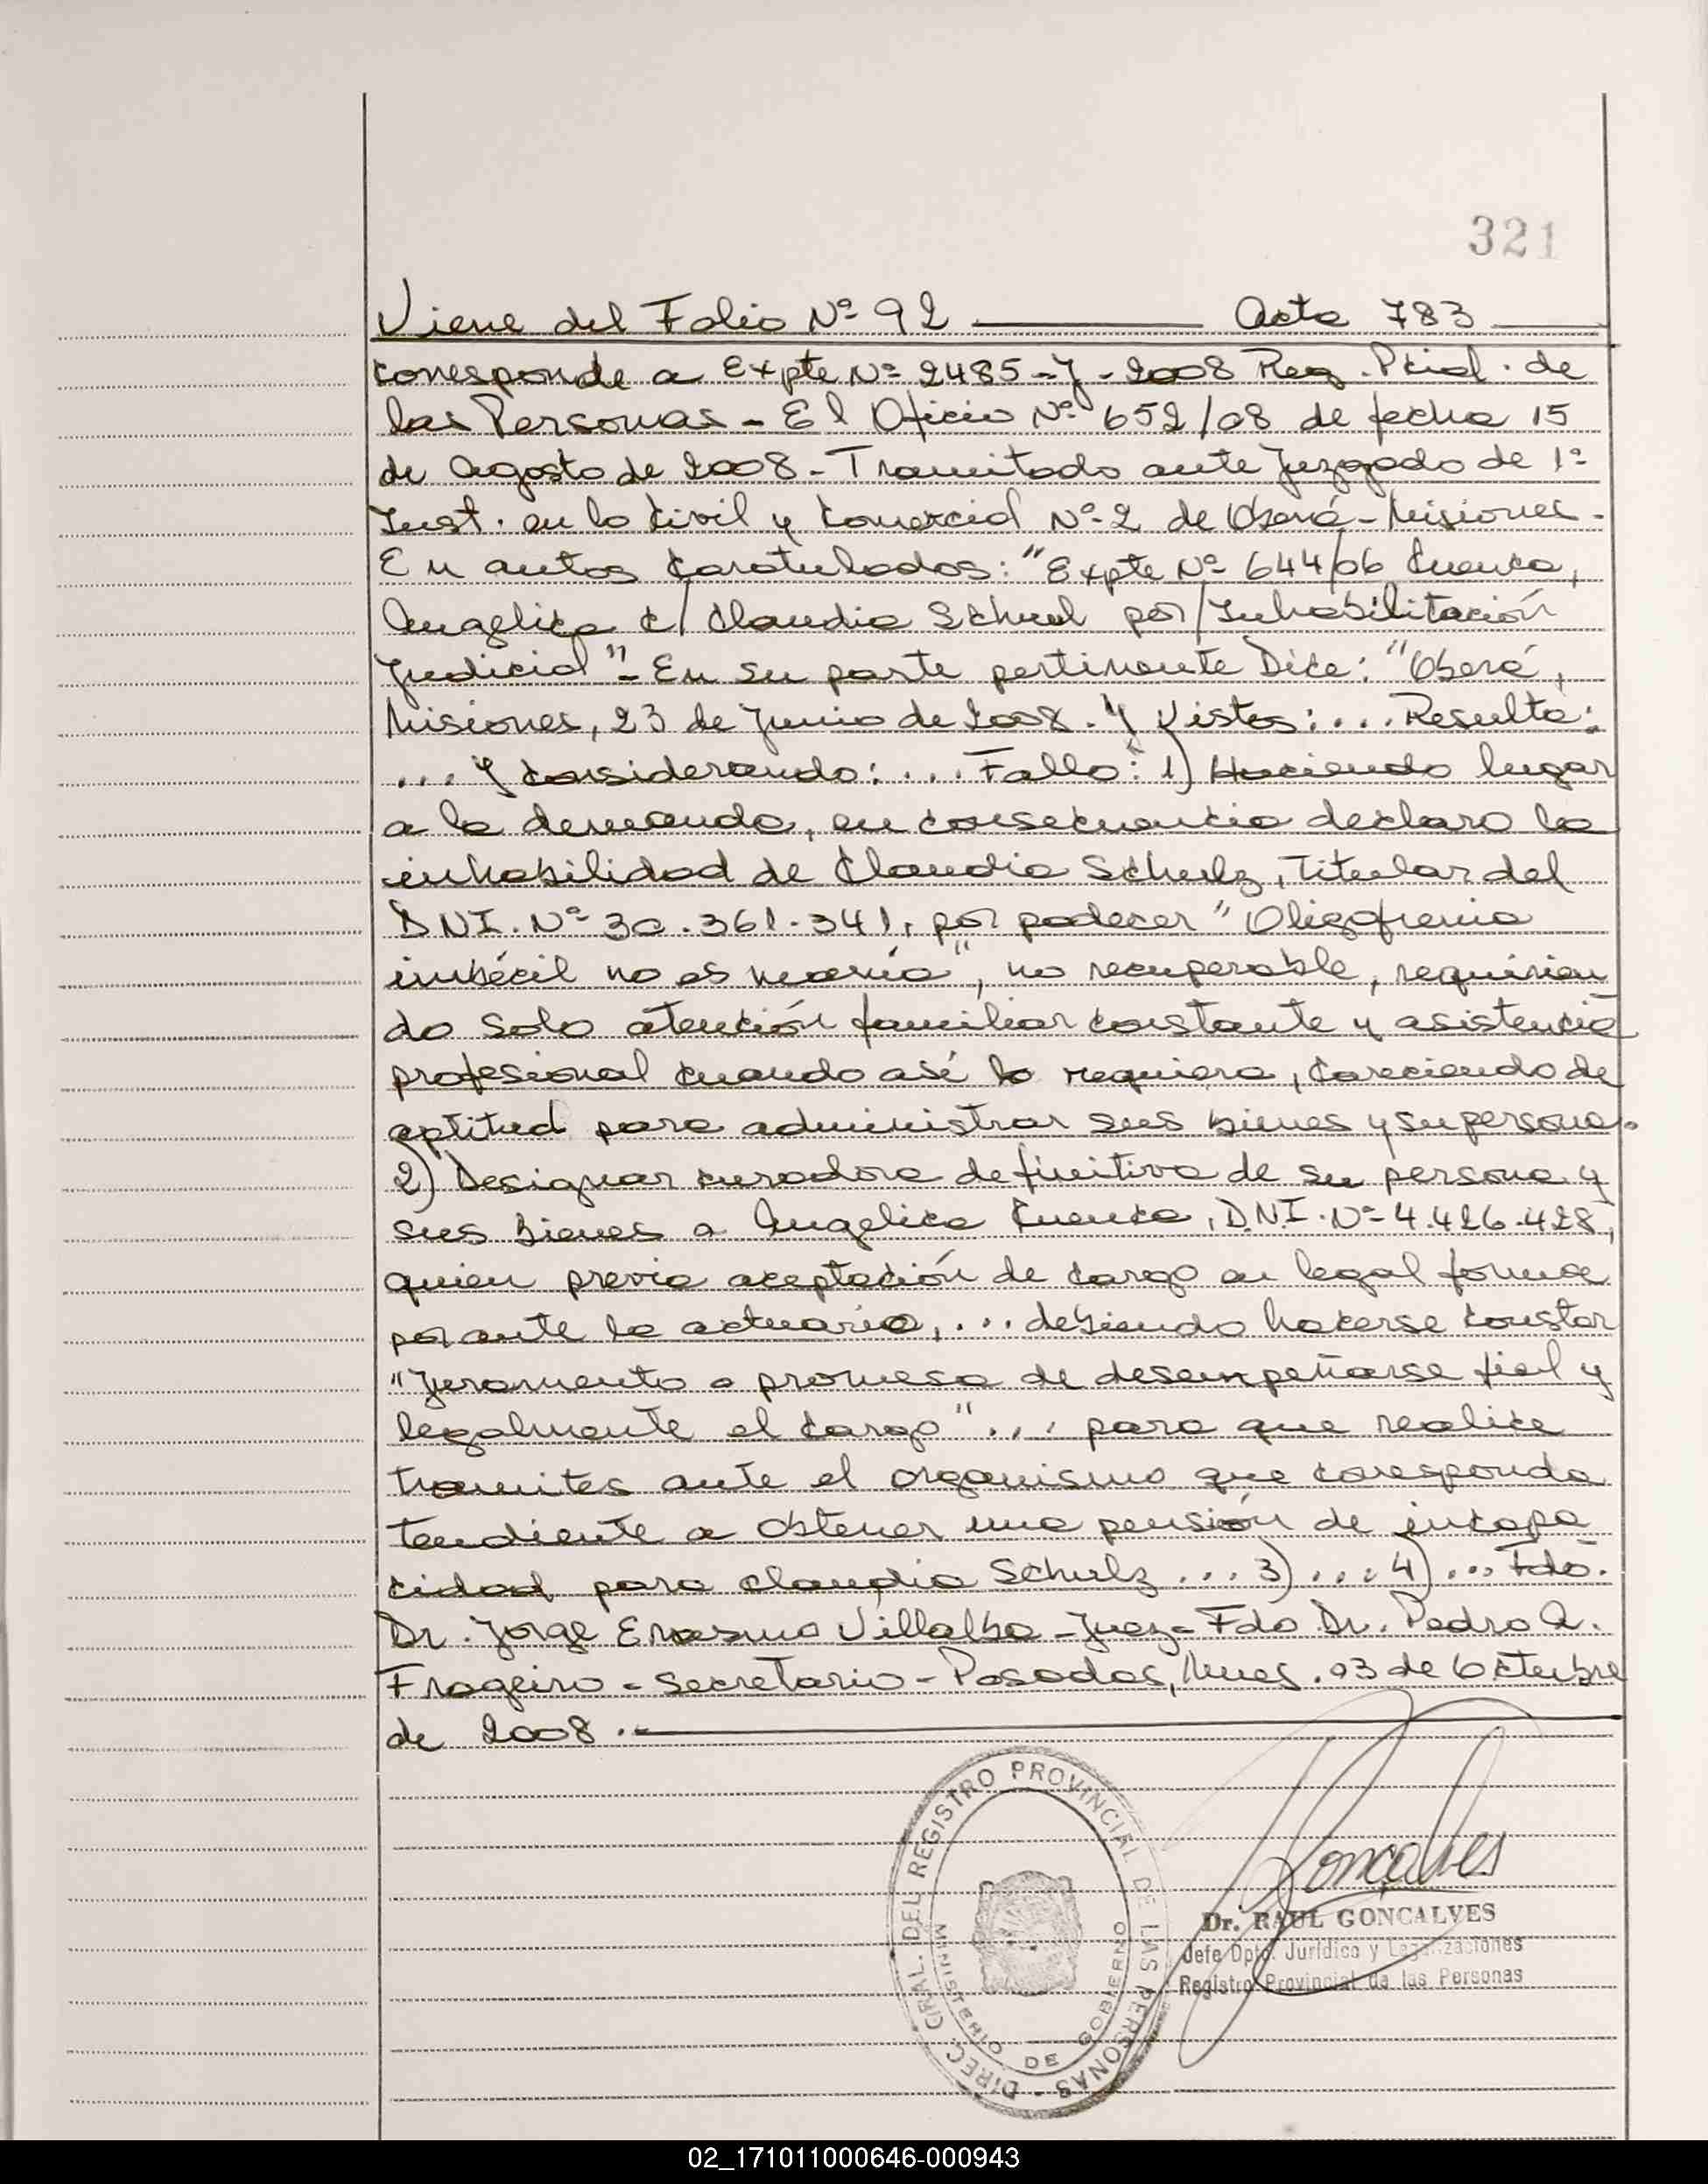 321
Viene del Folio Nº 92 ——— Acta 783 ——
corresponde a Expte Nº 2485-Y-2008 Reg. Pcial. de
las Personas - El Oficio Nº 652/08 de fecha 15
de Agosto de 2008 - Tramitado ante Juzgado de 1ª
Inst. en lo Civil y Comercial Nº 2 de Oberá - Misiones -
En autos Caratulados: "Expte Nº 644/06 Cuenca,
Angelica c/ Claudia Schul por/Inhabilitación
Judicial" - En su parte pertinente Dice: "Oberá,
Misiones, 23 de Junio de 2008. Y Vistos: ... Resulta:
... Y Considerando: ... Fallo: 1) Haciendo lugar
a la demanda, en consecuencia declaro la
inhabilidad de Claudia Schulz, Titular del
DNI. Nº 30.361.341, por padecer "Oligofrenia
imbécil no es", no recuperable, requirien
do solo atención familiar constante y asistencia
profesional cuando así lo requiera, Careciendo de
aptitud para administrar sus bienes y su persona.
2) Designar curadora definitiva de su persona y
sus bienes a Angelica Cuenca, D.N.I. Nº 4.426.428,
quien previa aceptación de cargo en legal forma
por ante la actuaria, ... debiendo hacerse constar
"Juramento o promesa de desempeñarse fiel y
legalmente el cargo" ... para que realice
tramites ante el organismo que coresponda
tendiente a obtener una pensión de incapa
cidad para Claudia Schulz ... 3) ... 4) ... Fdo.
Dr. Jorge Erasmo Villalba - Juez - Fdo Dr. Pedro A.
Frageiro - Secretario - Posadas, Mnes. 03 de Octubre
de 2008 .-
DIREC. GRAL. DEL REGISTRO PROVINCIAL DE LAS PERSONAS -
MINISTERIO DE GOBIERNO
Goncalves
Dr. RAUL GONCALVES
Jefe Dpto. Jurídico y Legalizaciones
Registro Provincial de las Personas
02_171011000646-000943